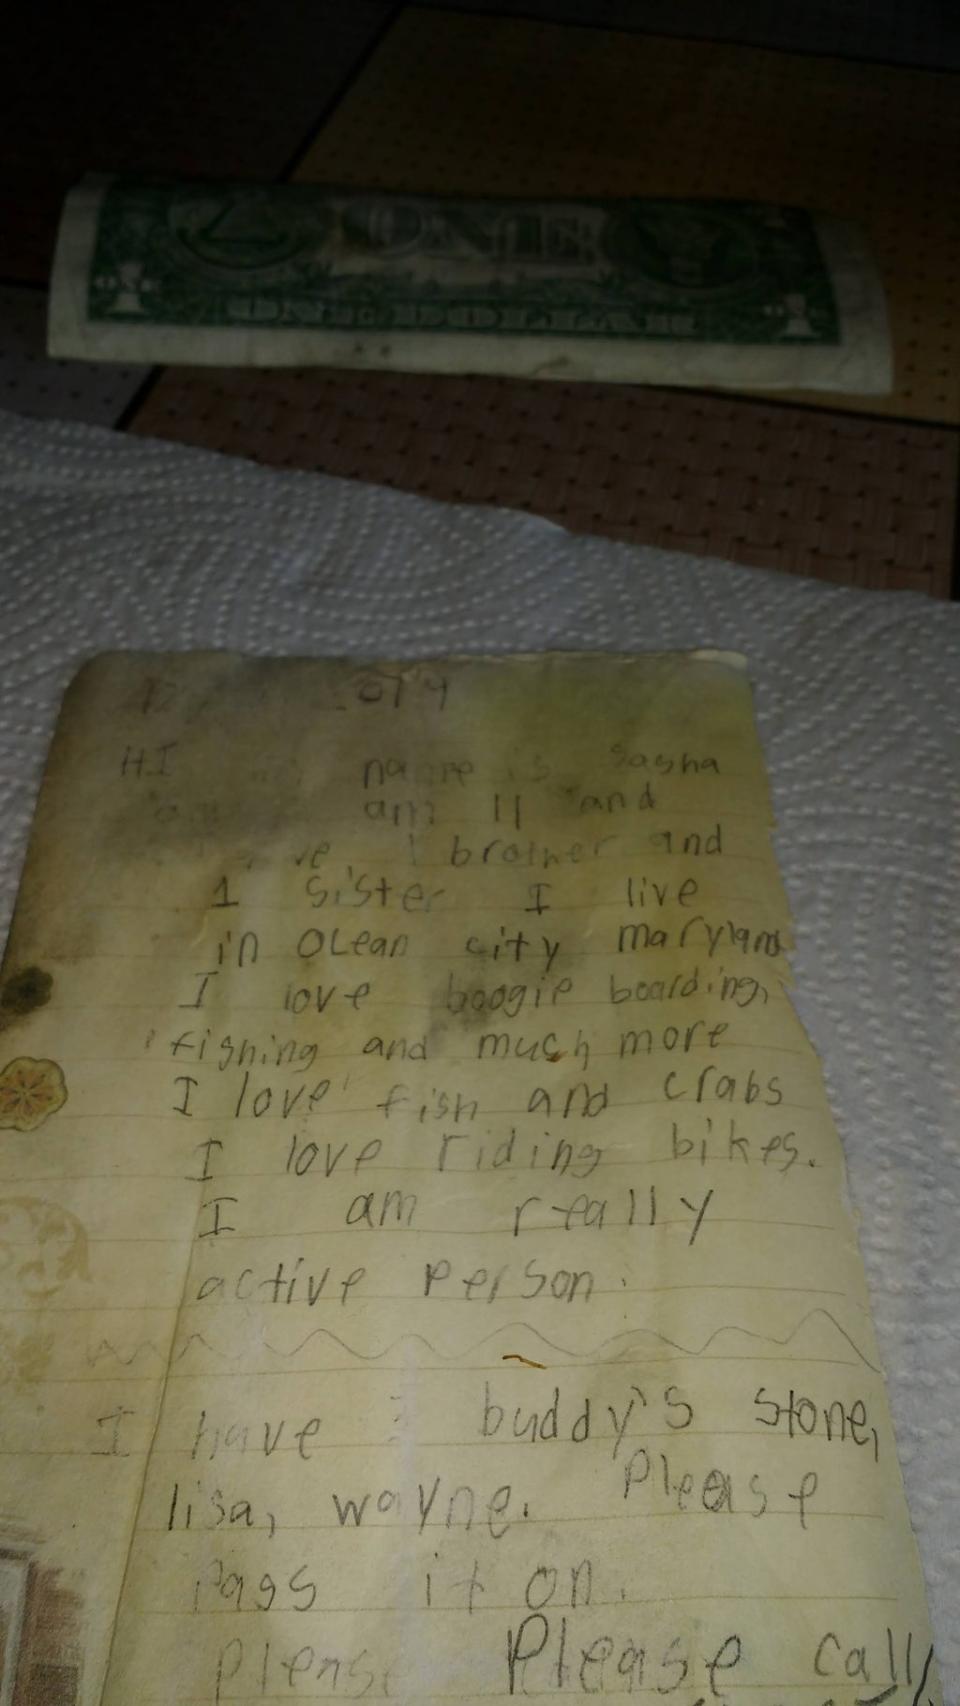 ONE
ONE
ONE
ONE DOLLAR
HI name is Sasha
am 11 and
1 brother and
1 sister I live
in Ocean city maryland
I love boogie boarding,
fishing and much more
I love fish and crabs
I love riding bikes.
I am really
active person.
I have buddy's stone,
lisa, wayne. Please
Pass it on.
Please Please call